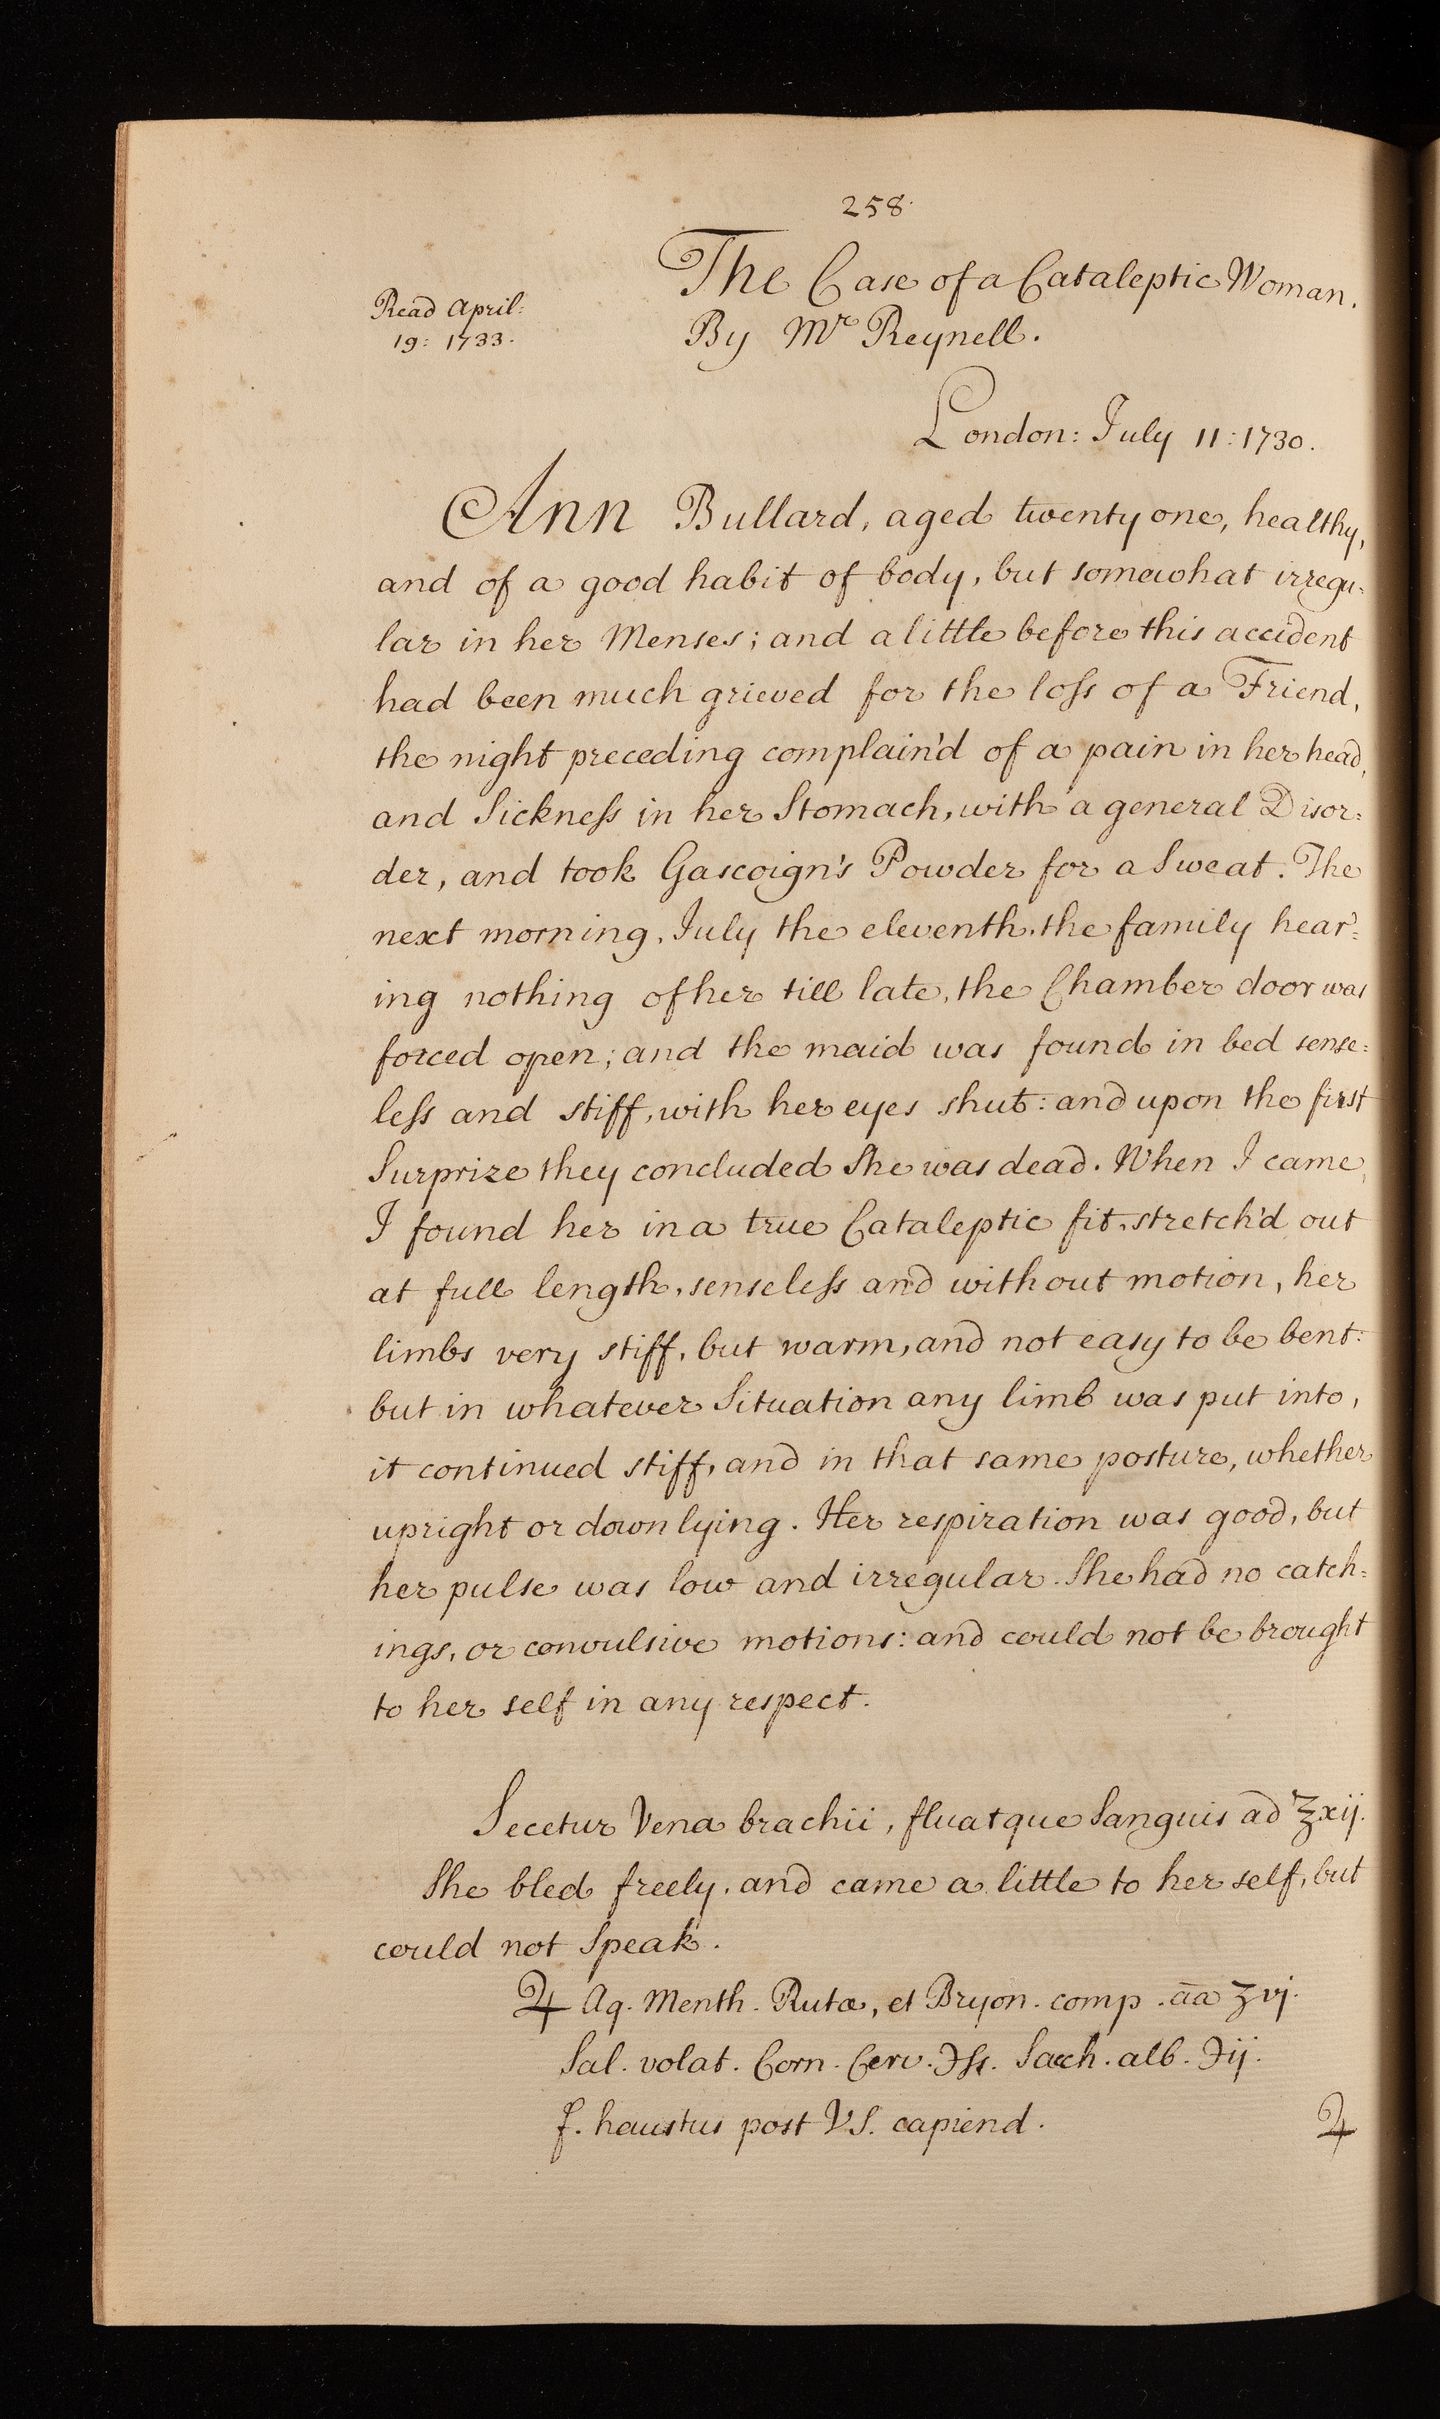 258.
The Case of a Cataleptic Woman.
Read April:
19: 1733.
By Mr Reynell.
London: July 11: 1730.
Ann Bullard, aged twenty one, healthy,
and of a good habit of body, but somewhat irregu:
lar in her Menses; and a little before this accident
had been much grieved for the loſs of a Friend,
the night preceding complain'd of a pain in her head,
and Sickneſs in her Stomach, with a general Disor:
der, and took Gascoign's Powder for a Sweat. The
next morning, July the eleventh, the family hear:
ing nothing of her till late, the Chamber door was
forced open; and the maid was found in bed sense:
leſs and stiff, with her eyes shut: and upon the first
Surprize they concluded She was dead. When I came,
I found her in a true Cataleptic fit, stretch'd out
at full length, senseleſs and without motion, her
limbs very stiff, but warm, and not easy to be bent:
but in whatever Situation any limb was put into,
it continued stiff, and in that same posture, whether
upright or down lying. Her respiration was good, but
her pulse was low and irregular. She had no catch:
ings, or convulsive motions: and could not be brought
to her self in any respect.
Secetur Vena brachii, fluatque Sanguis ad ℥xij.
She bled freely, and came a little to her self, but
could not Speak.
♃ Aq. Menth. Rutæ, et Bryon. comp. āa ʒvj.
Sal. volat. Corn. Cerv. ℈ſs. Sacch. alb. ℈ij.
f. haustus post V.S. capiend.
♃